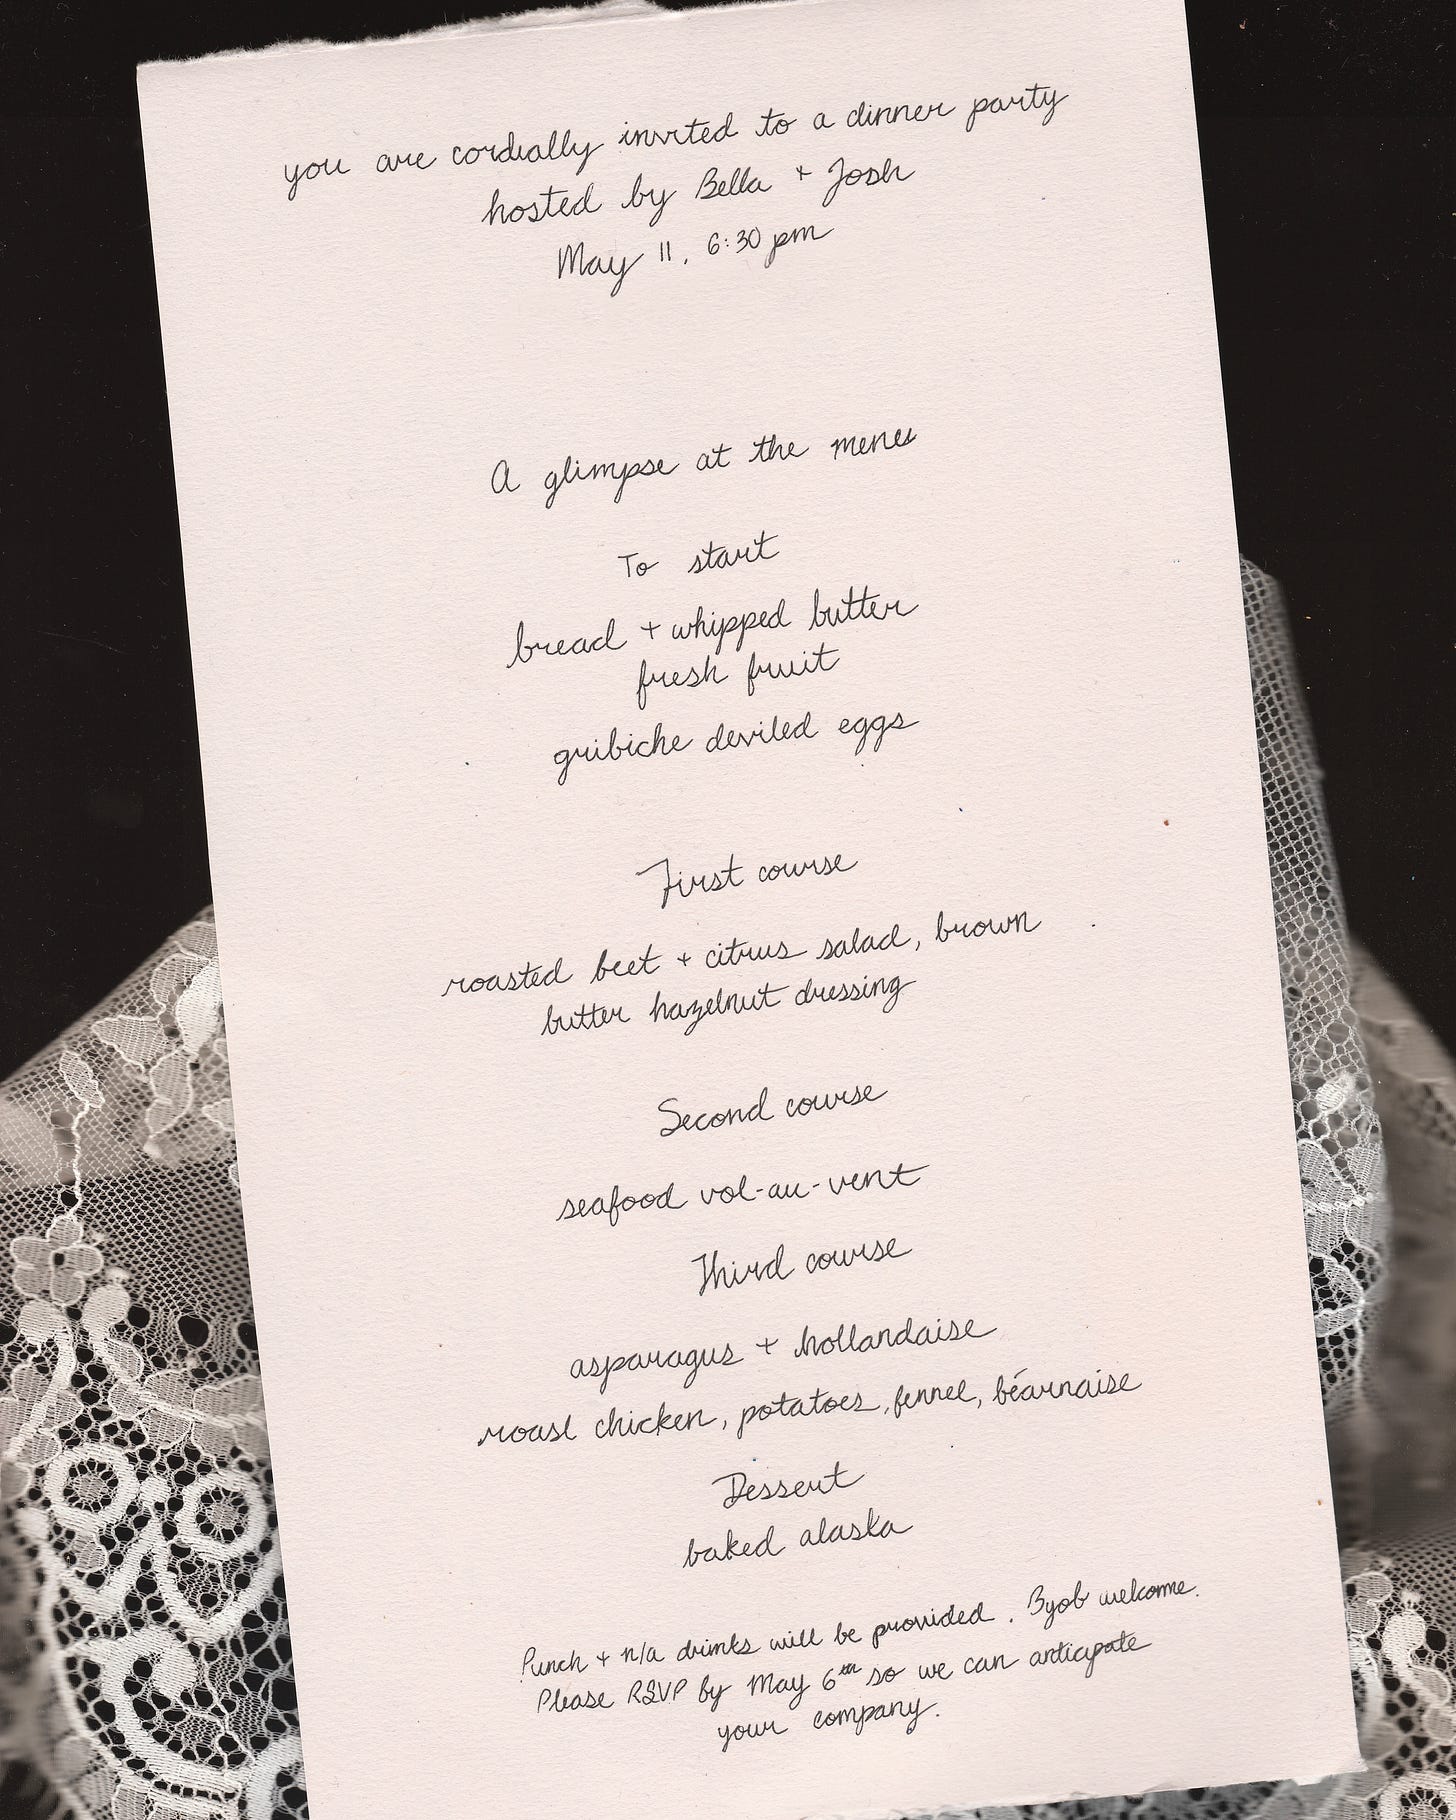 you are cordially invited to a dinner party
hosted by Bella + Josh
May 11, 6:30 pm
A glimpse at the menu
To start
bread + whipped butter
fresh fruit
gribiche deviled eggs
First course
roasted beet + citrus salad, brown
butter hazelnut dressing
Second course
seafood vol-au-vent
Third course
asparagus + hollandaise
roast chicken, potatoes, fennel, béarnaise
Dessert
baked alaska
Punch + n/a drinks will be provided. Byob welcome.
Please RSVP by May 6th so we can anticipate
your company.